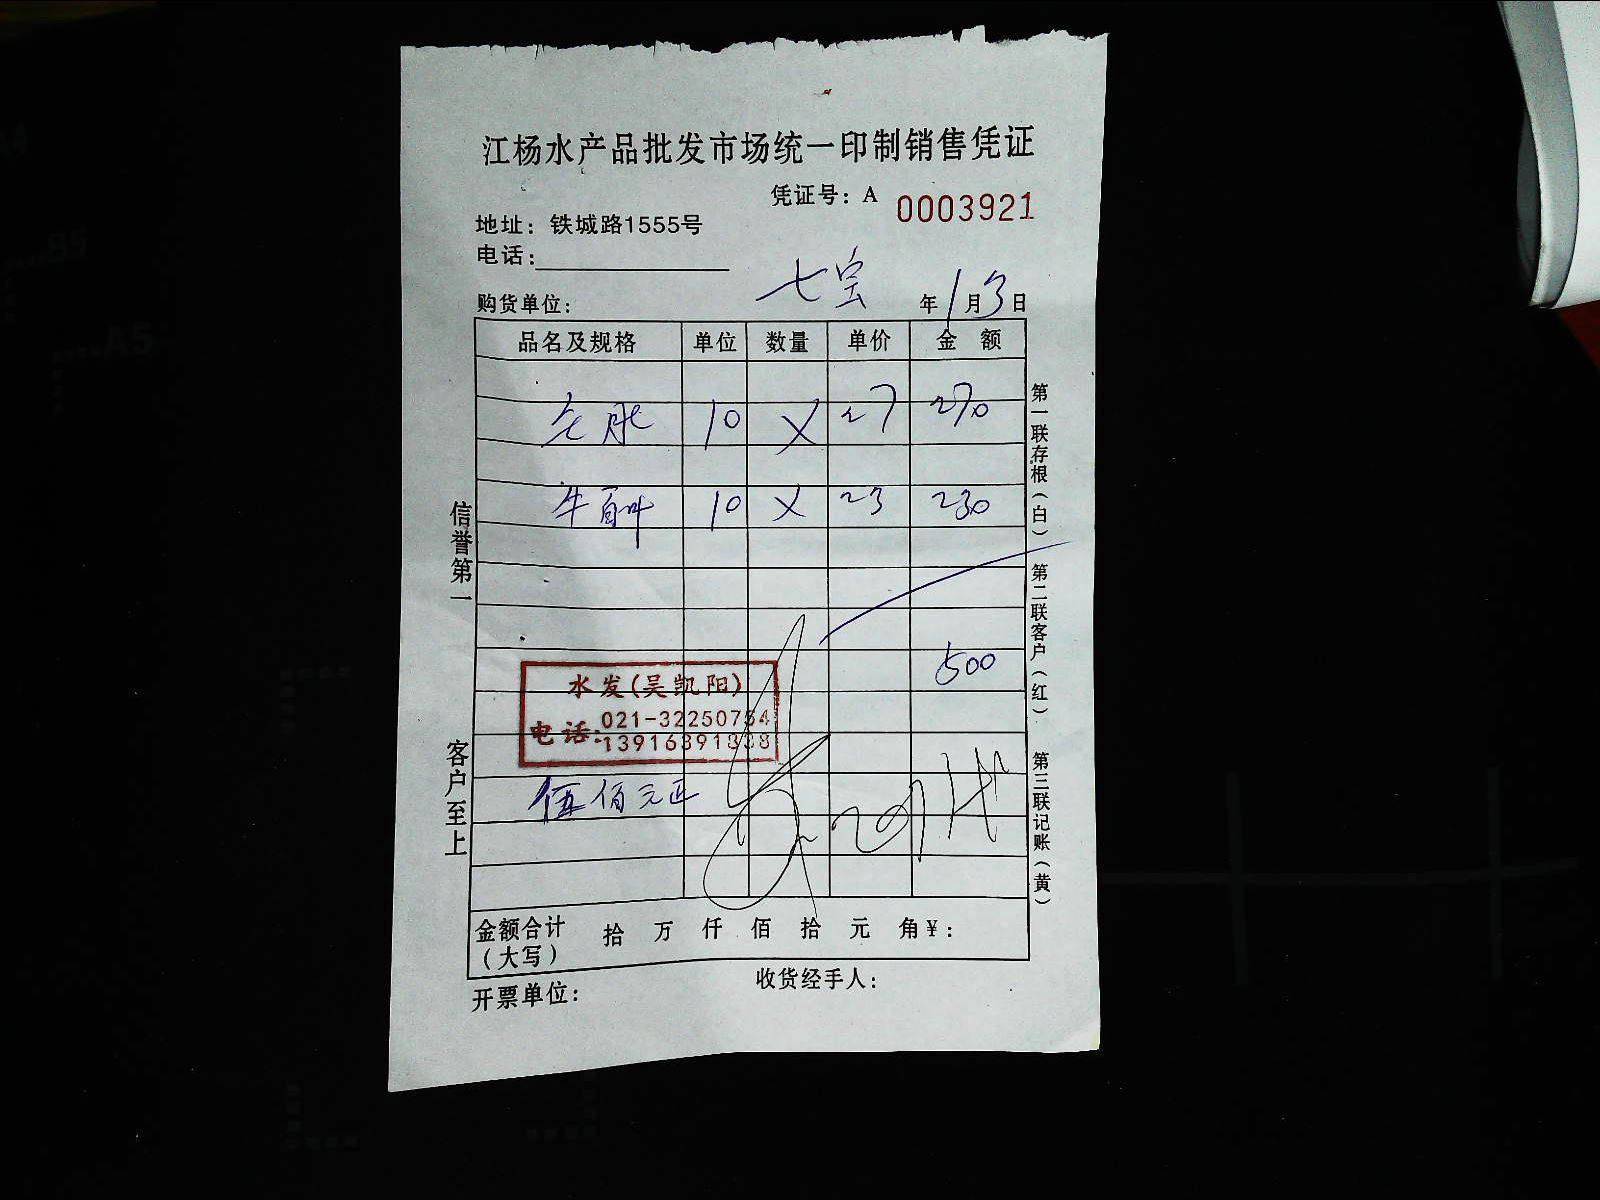 江杨水产品批发市场统一印制销售凭证
凭证号：A 0003921
地址：铁城路1555号
电话：
七宝
购货单位： 年1月3日
品名及规格 单位 数量 单价 金额
10 X 27 270
牛百叶 10 X 23 230
500
水发(吴凯阳)
电话：021-32250754
13916391838
伍佰元正
金额合计（大写） 拾 万 仟 佰 拾 元 角 ¥：
开票单位： 收货经手人：
信誉第一
客户至上
第一联存根（白）
第二联客户（红）
第三联记账（黄）